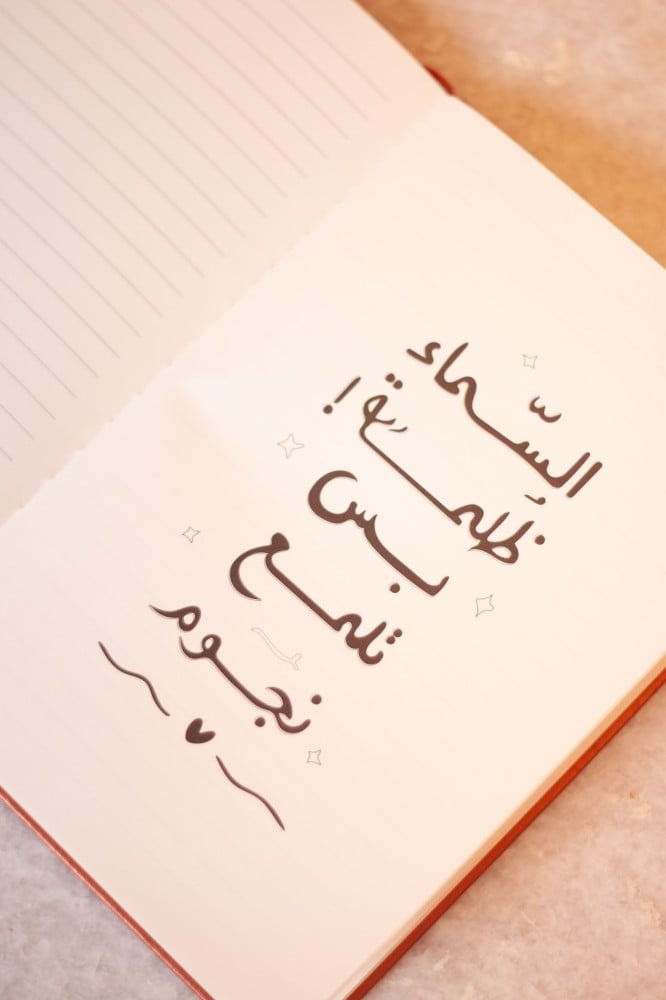 السّماءُ
ظلماءة!
بس
تلمع
نجوم